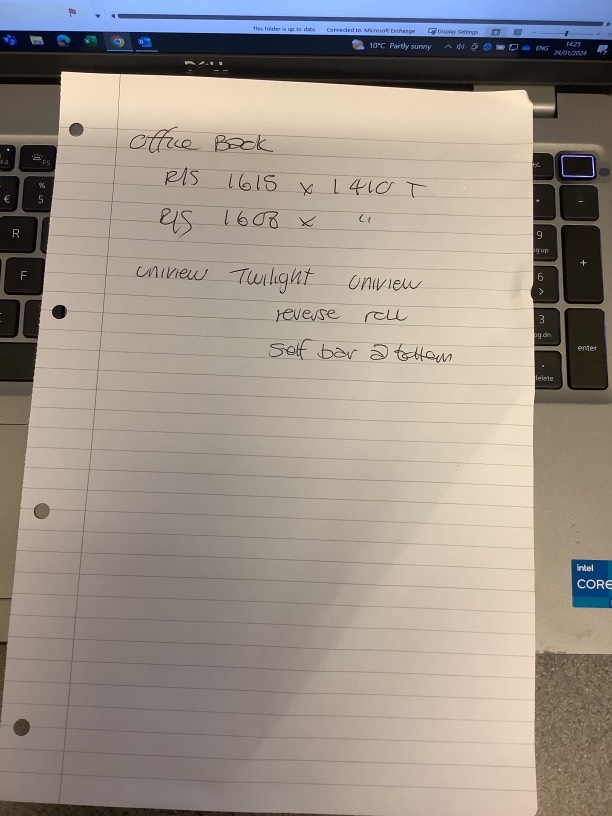 This file is up to date Connected to: Microsoft Exchange Display Settings
10°C Partly sunny ENG 14:25
24/01/2024
DELL
Office Back
R/S 1615 x 1410 T
R/S 1608 x "
uniview Twilight Uniview
reverse roll
Self bar @ bottom
F4 F5
€ % 5
R
F
+/-
-
9
pg up
+
6
>
3
pg dn
enter
.
delete
intel
CORE